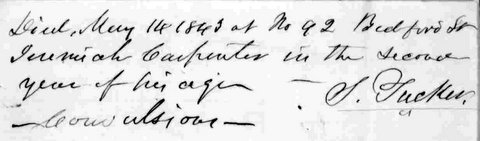 Died, May 14 1843 at No 92 Bedford St
Jeremiah Carpenter in the second
year of his age — S. Tucker.
— Convulsions —